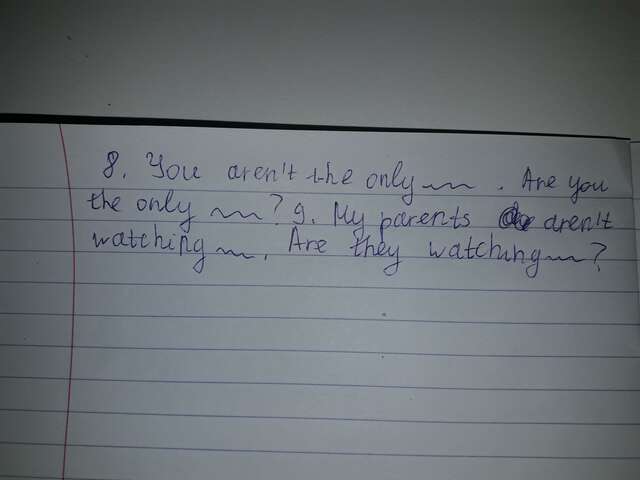 8. You aren't the only ~~ . Are you
the only ~~ ? 9. My parents aren't
watching ~~ . Are they watching ~~ ?